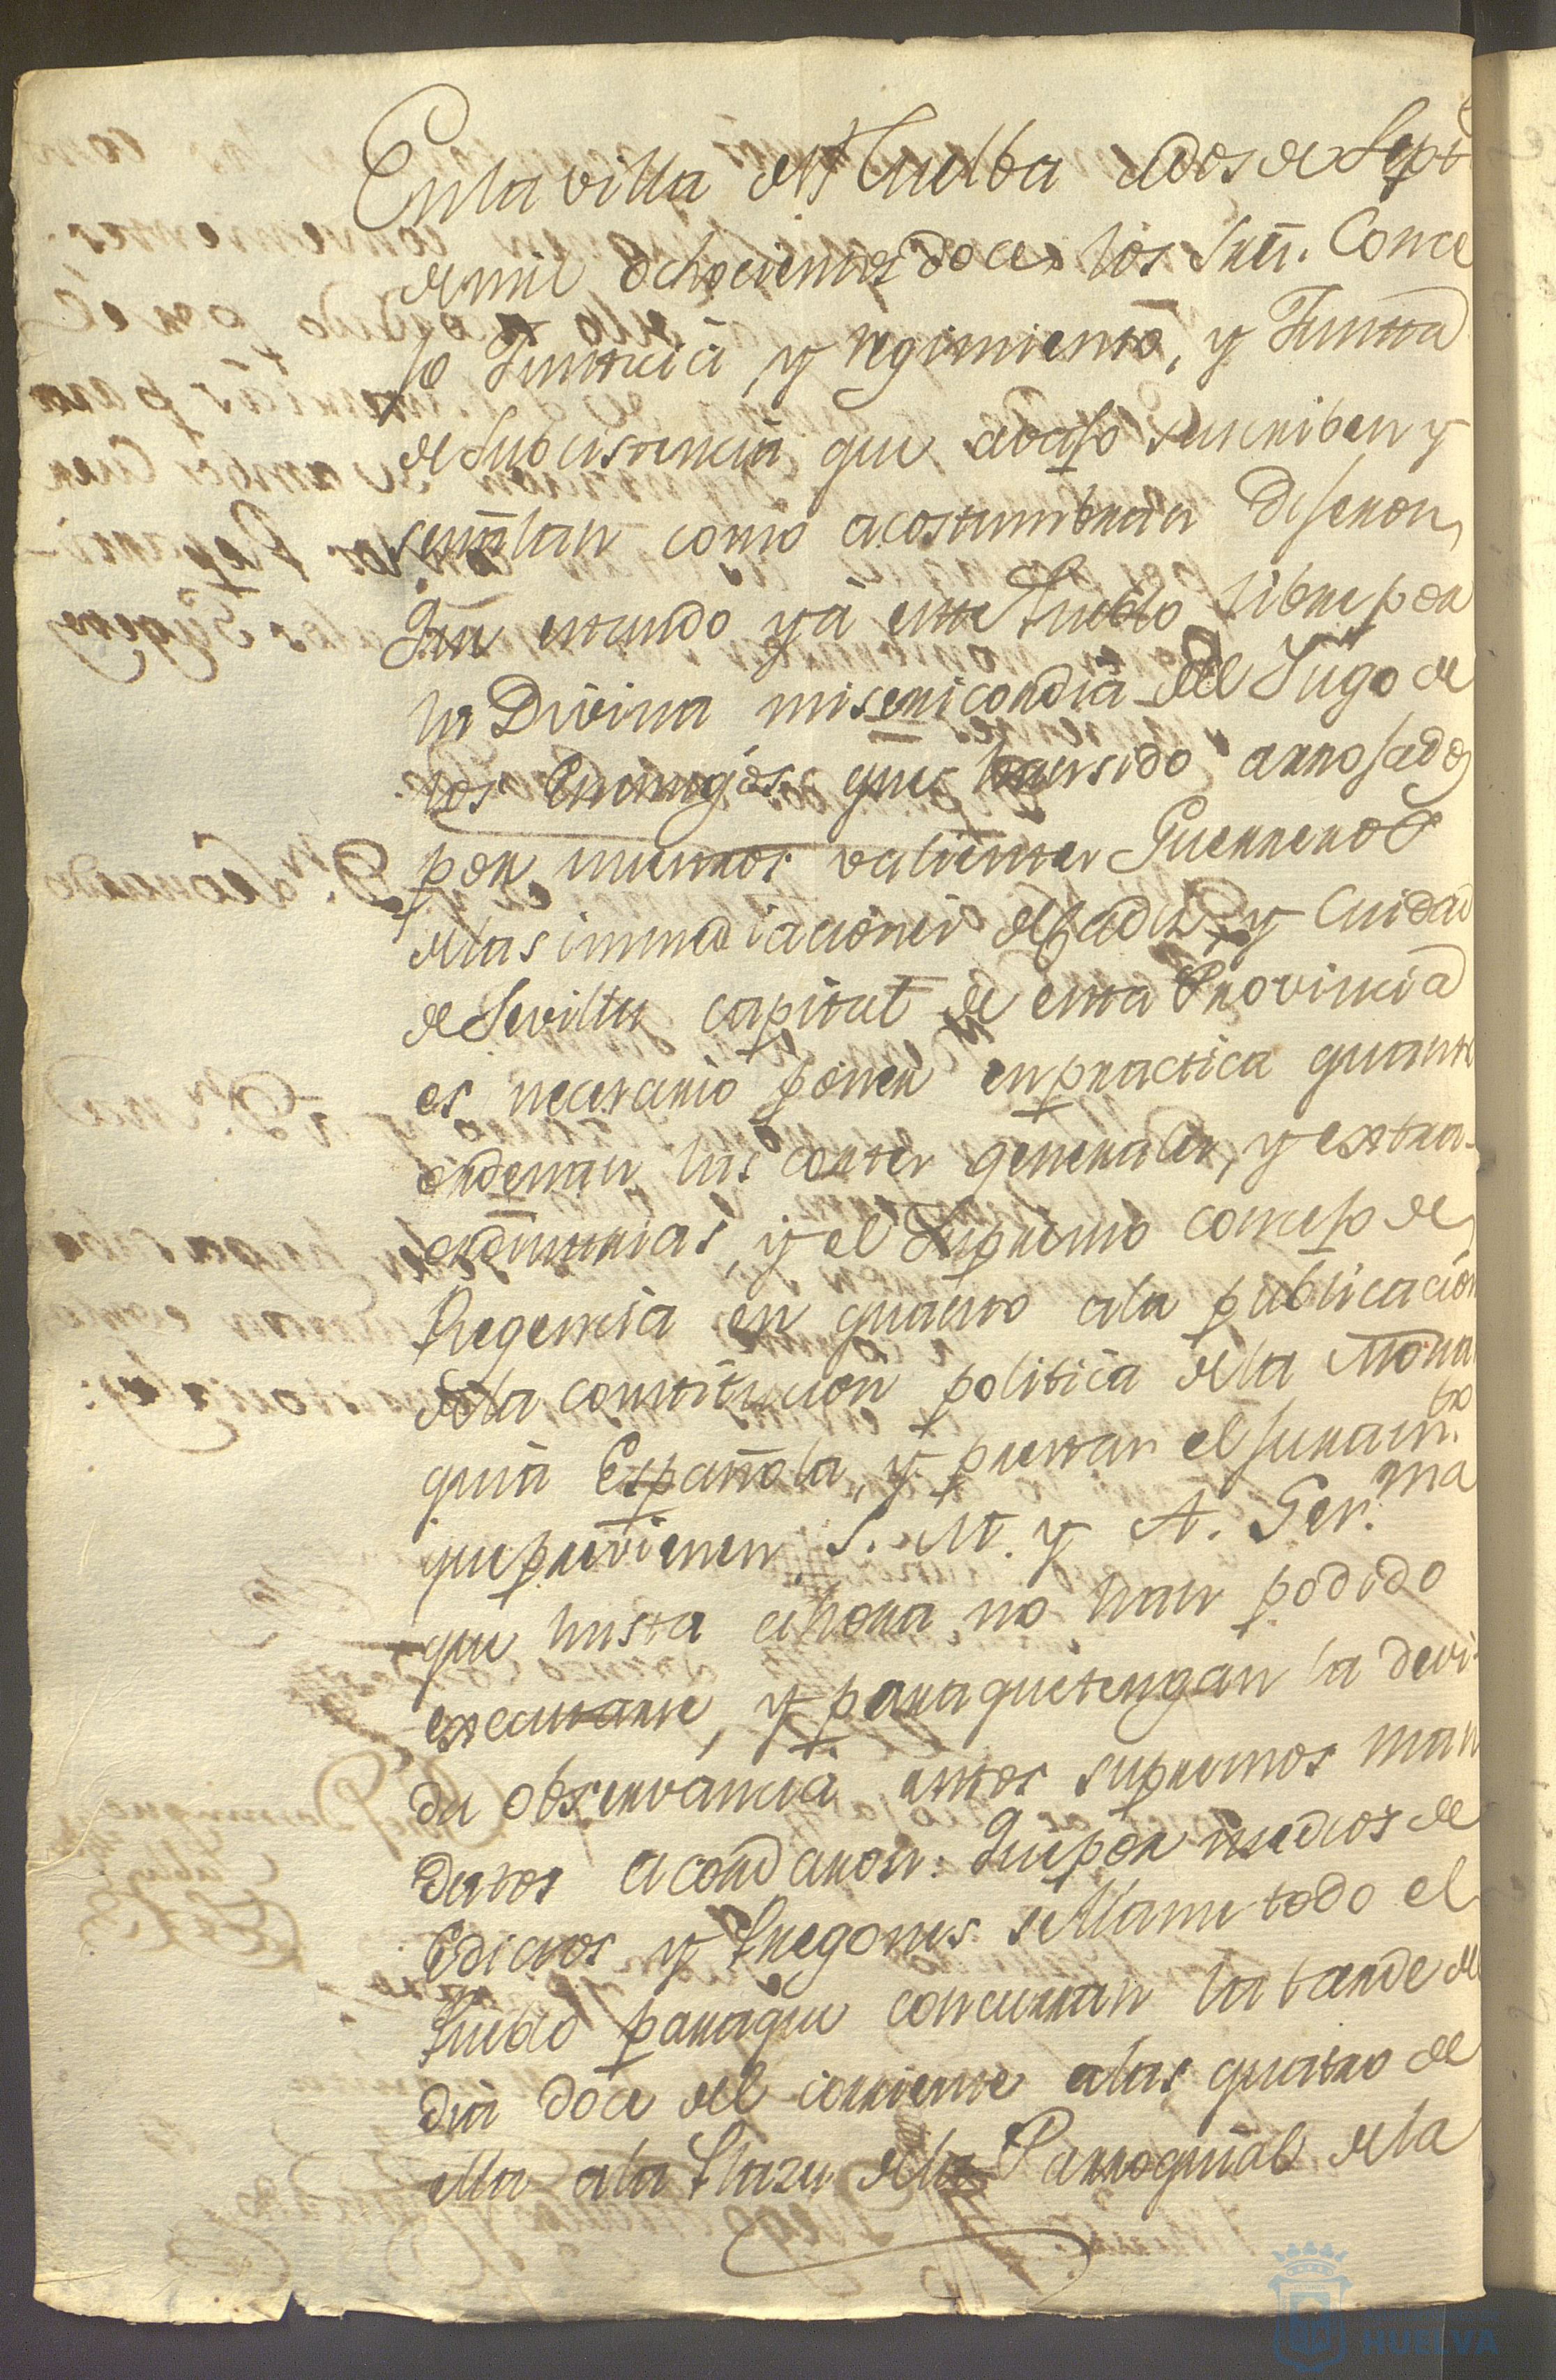 En la villa de Huelba a dos de Sept.e
de mil ochocientos doce los Sres. Conce
jo Justicia y regimiento, y Junta
de Subcistencia que abajo suscriben y
señalan como acostumbran Dijeron,
Que estando yá este Pueblo libre por
la Divina misericordia del Jugo de
los Enemigos que han sido arrojados
por nuestros valientes Guerreros
de las inmediaciones de Cadiz, y Ciudad
de Sevilla capital de esta Provincia
es necesario poner en practica quanto
ordenan las cortes generales, y extra-
ordinarias, y el Supremo consejo de
Regencia en quanto a la publicacion
de la constitucion politica de la Monar
quia Española, y prestar el juram.to
que previenen S. M. y A. Ser.ma
que hasta ahora no han podido
executarse, y para que tengan la devi-
da observancia estos supremos man
datos acordaron: Que por medios de
Edictos y Pregones se llame todo el
Pueblo para que concurran la tarde del
dia doce del corriente a las quatro de
ella a la Plaza de la Parroquial de la
HUELVA